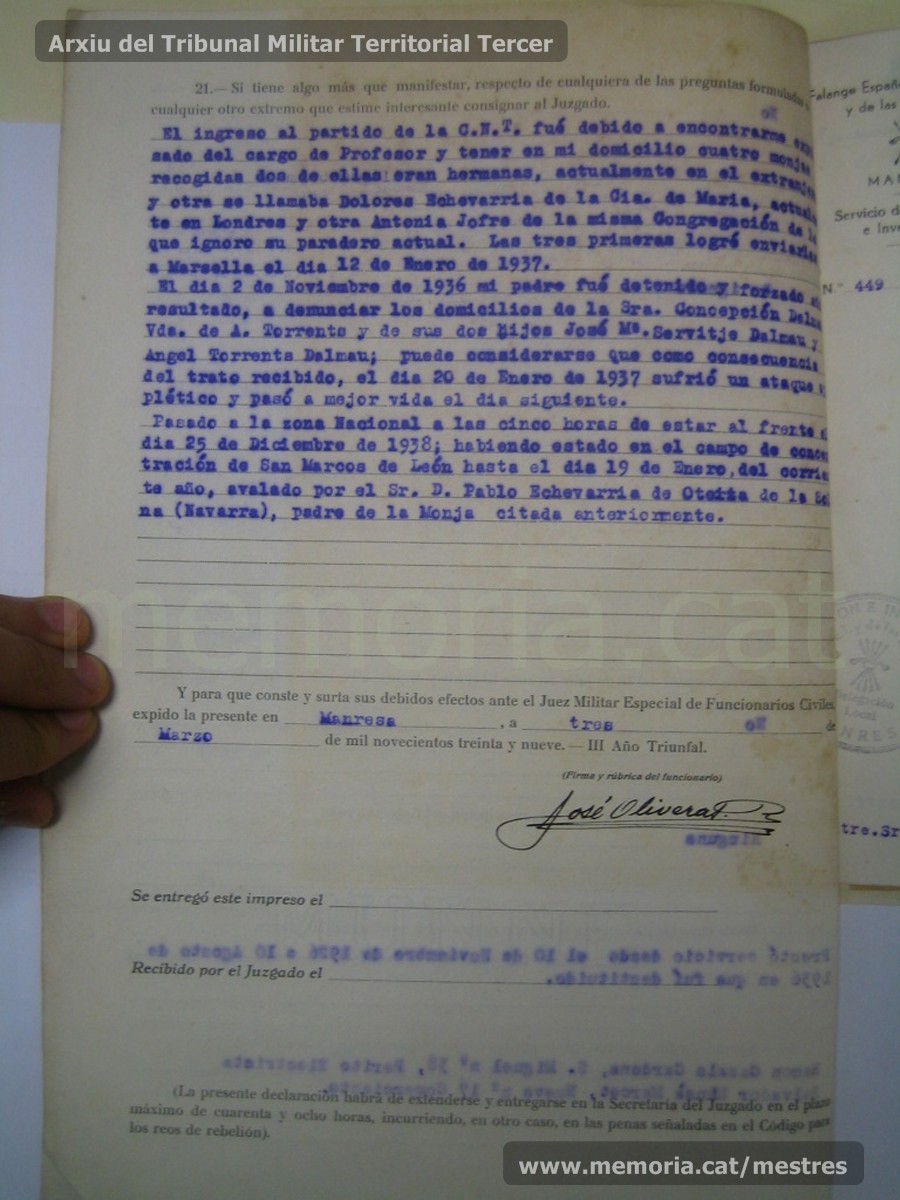 Arxiu del Tribunal Militar Territorial Tercer
21.— Si tiene algo más que manifestar, respecto de cualquiera de las preguntas formuladas
cualquier otro extremo que estime interesante consignar al Juzgado.
El ingreso al partido de la C.N.T. fué debido a encontrarme
sado del cargo de Profesor y tener en mi domicilio cuatro monjas
recogidas dos de ellas eran hermanas, actualmente en el extranj
y otra se llamaba Dolores Echevarria de la Cia. de Maria, actual
te en Londres y otra Antonia Jofre de la misma Congregación de
que ignoro su paradero actual. Las tres primeras logré enviarlas
a Marsella el dia 12 de Enero de 1937.
El dia 2 de Noviembre de 1936 mi padre fué detenido y forzado
resultado, a denunciar los domicilios de la Sra. Concepción Dalmau
Vda. de A. Torrents y de sus dos hijos José Mª. Servitje Dalmau y
Angel Torrents Dalmau; puede considerarse que como consecuencia
del trato recibido, el dia 20 de Enero de 1937 sufrió un ataque
plético y pasó a mejor vida el dia siguiente.
Pasado a la zona Nacional a las cinco horas de estar al frente
dia 25 de Diciembre de 1938; habiendo estado en el campo de concen
tración de San Marcos de León hasta el dia 19 de Enero, del corrien
te año, avalado por el Sr. D. Pablo Echevarria de Oteiza de la So
na (Navarra), padre de la Monja citada anteriormente.
memoria.cat
Y para que conste y surta sus debidos efectos ante el Juez Militar Especial de Funcionarios Civiles
expido la presente en Manresa, a tres de
Marzo de mil novecientos treinta y nueve. — III Año Triunfal.
(Firma y rúbrica del funcionario)
José Oliveras
Se entregó este impreso el
Recibido por el Juzgado el
(La presente declaración habrá de extenderse y entregarse en la Secretaría del Juzgado en el plazo
máximo de cuarenta y ocho horas, incurriendo, en otro caso, en las penas señaladas en el Código para
los reos de rebelión).
Falange Españ
y de las
MAN
Servicio d
e Inv
N.º 449
tre.Sr
www.memoria.cat/mestres